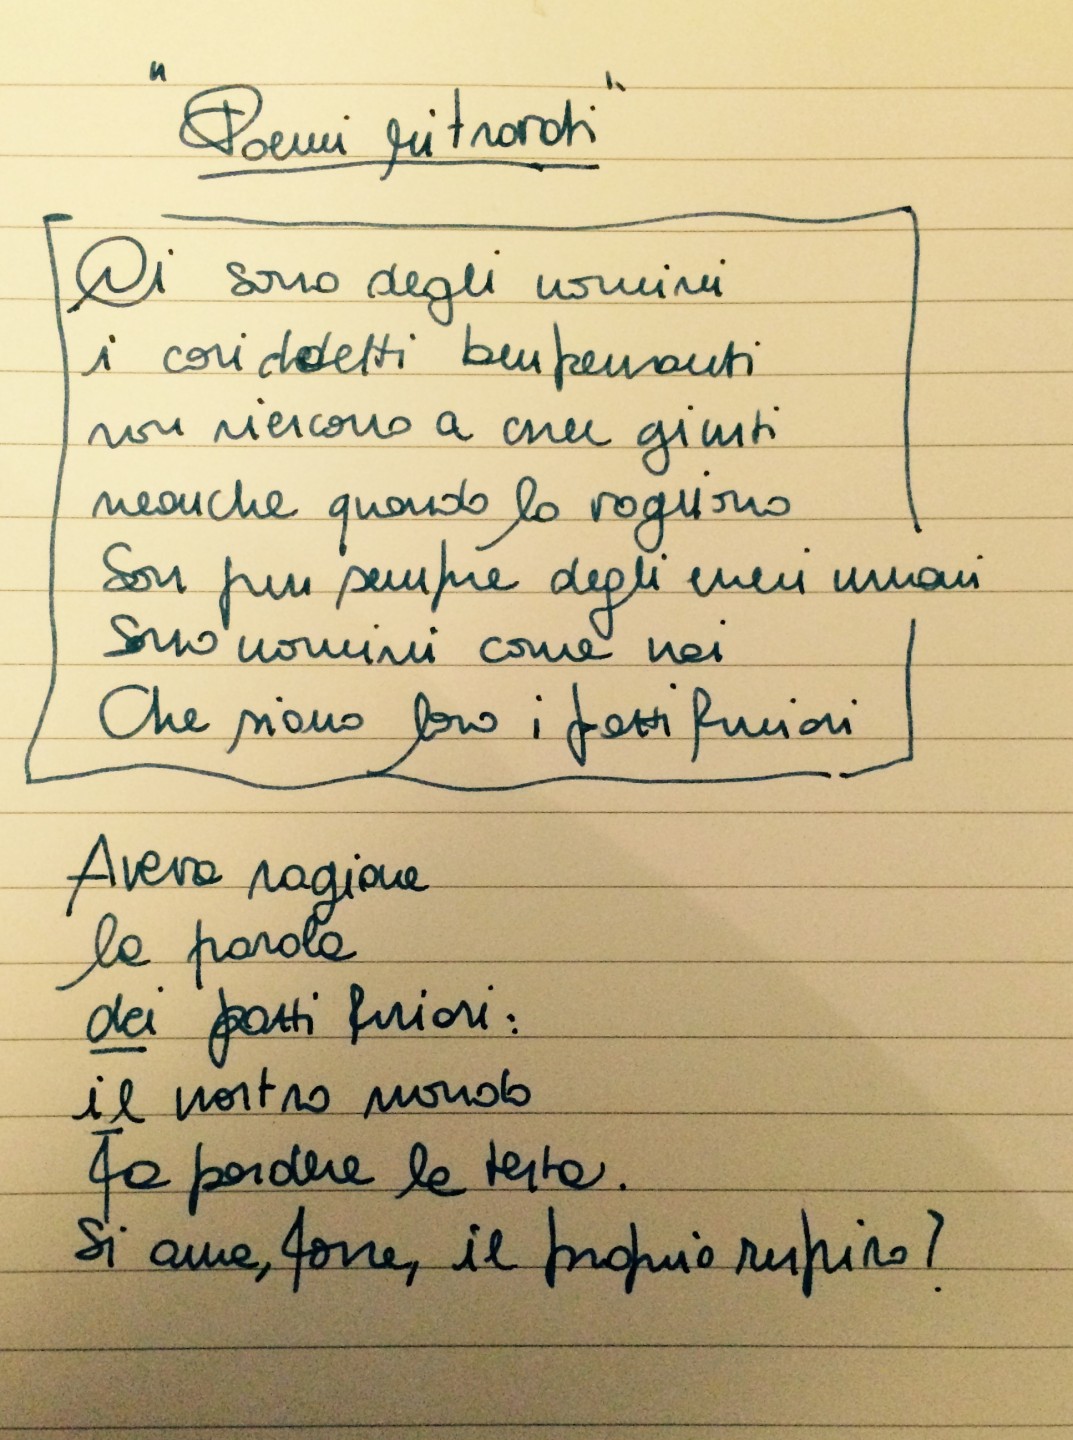 "Poemi ritrovati"
Ci sono degli uomini
i cosiddetti benpensanti
non riescono a esser giusti
neanche quando lo vogliono
Son pur sempre degli esseri umani
Sono uomini come noi
Che siano loro i fatti furiosi
Aveva ragione
la parola
dei fatti furiosi:
il nostro mondo
fa perdere la testa.
Si ama, forse, il proprio respiro?